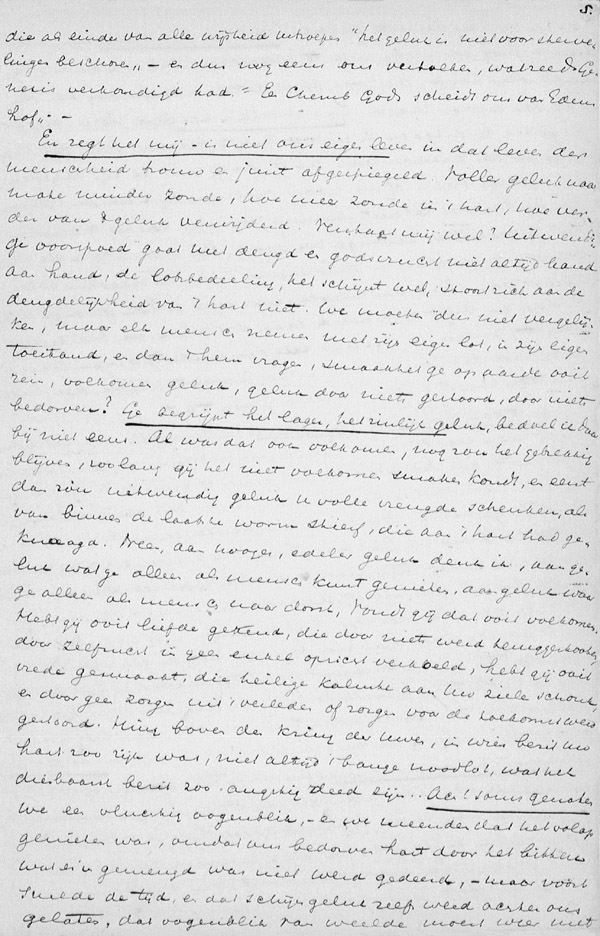 5.
die als einde van alle wijsheid uitroepen "het geluk is niet voor sterve-
lingen beschoren„ – en dus nog eens ons vertolken, wat reeds Ge-
nesis verkondigd had. "Een Cherub Gods scheidt ons van Edens
hof„. –
En zegt het mij – is niet ons eigen leven in dat leven der
menschheid trouw en juist afgespiegeld. Voller geluk naar
mate minder zonde, hoe meer zonde in 't hart, hoe ver-
der van 't geluk verwijderd. Verstaat mij wel? Uitwendi-
ge voorspoed gaat met deugd en godsvrucht niet altijd hand
aan hand, de lotsbedeeling, het schijnt wel, stoort zich aan de
deugdelijkheid van 't hart niet. We moeten dus niet vergelij-
ken, maar elk mensch nemen met zijn eigen lot, in zijn eigen
toestand, en dan 't hem vragen, smaaktet ge op aarde ooit
rein, volkomen geluk, geluk door niets gestoord, door niets
bedorven? Ge begrijpt het lager, het zinlijk geluk, bedoel ik daar
bij niet eens. Al was dat ook volkomen, nog zou het gebrekkig
blijven, zoolang gij het niet volkomen smaken kondt, en eerst
dan zou uitwendig geluk u volle vreugde schenken, als
van binnen de laatste worm stierf, die aan 't hart had ge-
knaagd. Neen, aan hooger, edeler geluk denk ik, aan ge-
luk wat ge alleen als mensch kunt genieten, aan geluk waar
ge alleen als mensch naar dorst, vondt gij dat ooit volkomen.
Hebt gij ooit liefde gekend, die door niets werd teruggestooten,
door zelfzucht in geen enkel opzicht verkoeld, hebt gij ooit
vrede gesmaakt, die heilige kalmte aan Uw ziele schonk,
en door geen zorgen uit 't verleden of zorgen voor de toekomst werd
gestoord. Hing boven den kring der uwen, in wier bezit Uw
hart zoo rijk was, niet altijd 't bange noodlot, wat het
dierbaarst bezit zoo angstig deed zijn. Ach! soms genoten
we een vluchtig oogenblik, – en we meenden dat het volop
genieten was, omdat ons bedorven hart door het bittere
wat er in gemengd was niet werd gedeerd, – maar voort
snelde de tijd, en dat schijngeluk zelf werd achter ons
gelaten, dat oogenblik van weelde moest weer met